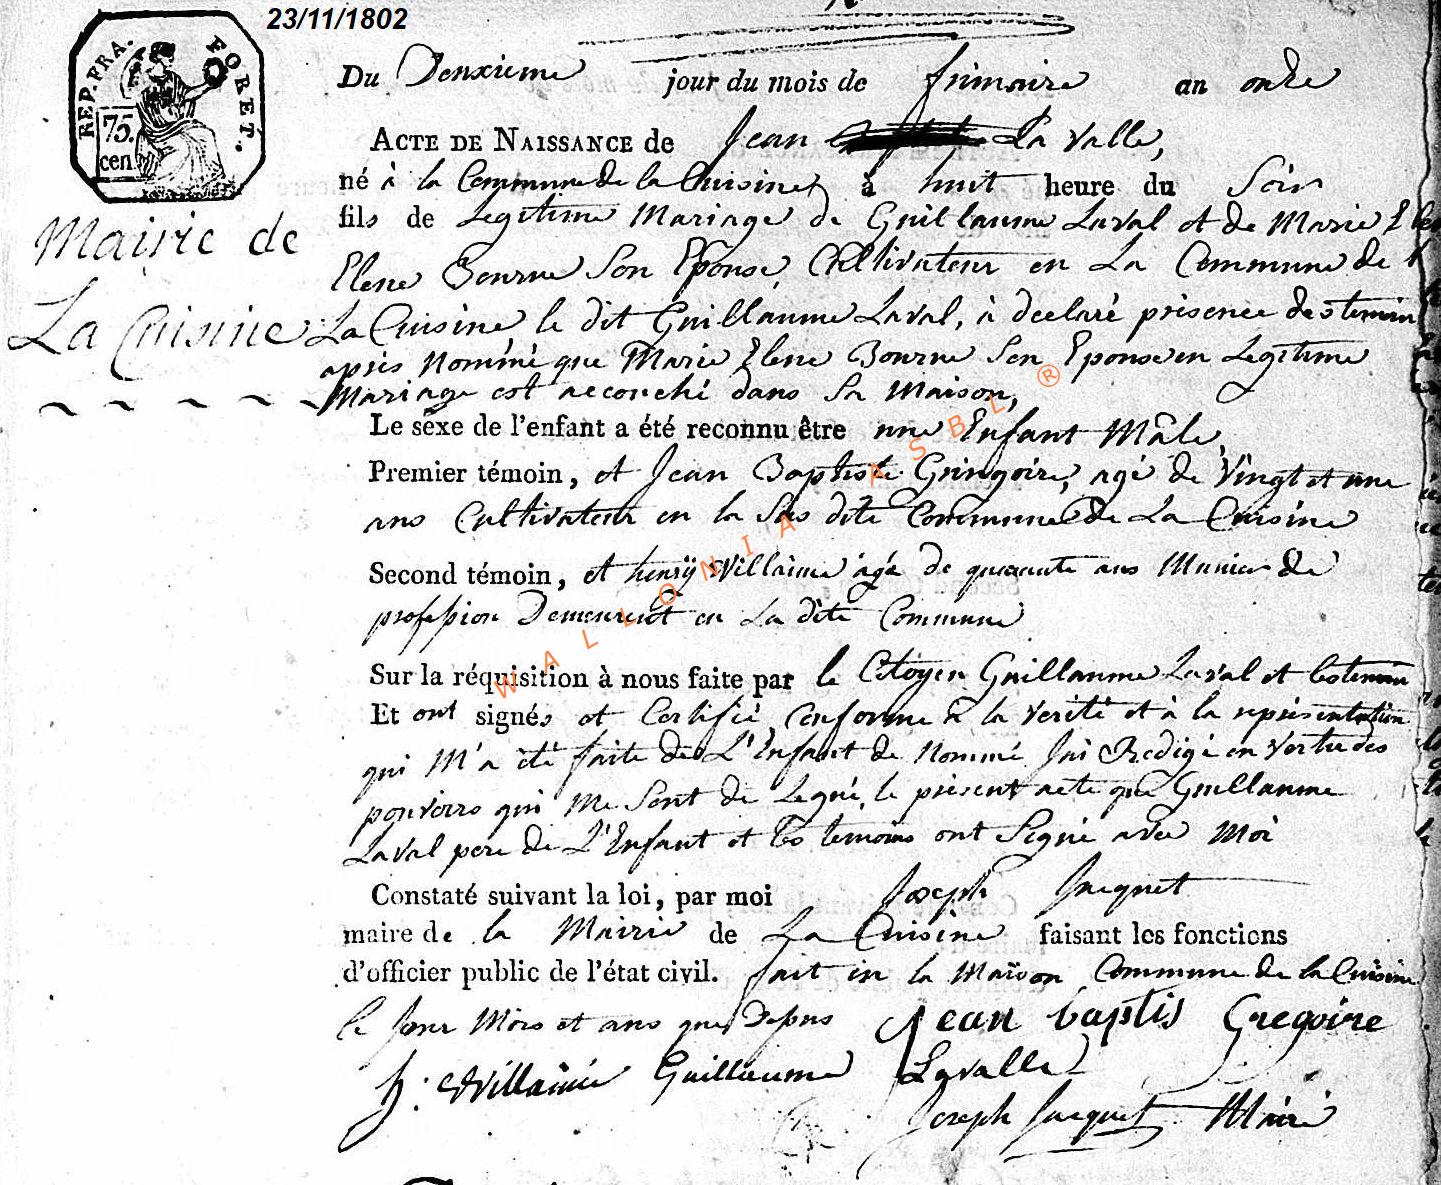 23/11/1802
REP. FRA. FORET.
75. cen.
Du Deuxieme jour du mois de frimaire an onze
ACTE DE NAISSANCE de Jean La valle,
né à la Commune de la Cuisine à huit heure du Soir
fils de Legitime Mariage de Guillaume Laval et de Marie
Elene Bourne Son Epouse, Cultivateur en La Commune de
Mairie de
La Cuisine
La Cuisine le dit Guillaume Laval, à declaré présence des temoin
après Nommé que Marie Elene Bourne Son Epouse en Legitime
Mariage est acouché dans Sa Maison,
Le sexe de l'enfant a été reconnu être une Enfant Mâle,
Premier témoin, et Jean Baptiste Gringoire, agé de Vingt et une
ans Cultivateur en la Sus dite Commune de La Cuisine
Second témoin, et henrÿ Willaime âgé de quarante ans Munier de
profession Demeurent en La dite Commune
Sur la réquisition à nous faite par le Citoyen Guillaume Laval et les temoin
Et ont signés et Certifié, Conforme à la verité et à la représentation
qui M'a été faite de L'Enfant de Nommé Jai Redigé en Vertu des
pouvoirs qui me Sont de Legué, le présent acte que Guillaume
Laval pere de L'Enfant et Les temoins ont Signé avec Moi
Constaté suivant la loi, par moi Joseph Jacquet
maire de la Mairie de La Cuisine faisant les fonctions
d'officier public de l'état civil. fait en la Maison Commune de la Cuisine
le Jour Mois et ans que Depus Jean baptis Gregoire
h: Willaime Guillaume Lavalle
Joseph Jacquet Maire
WALLONIA ASBL ®